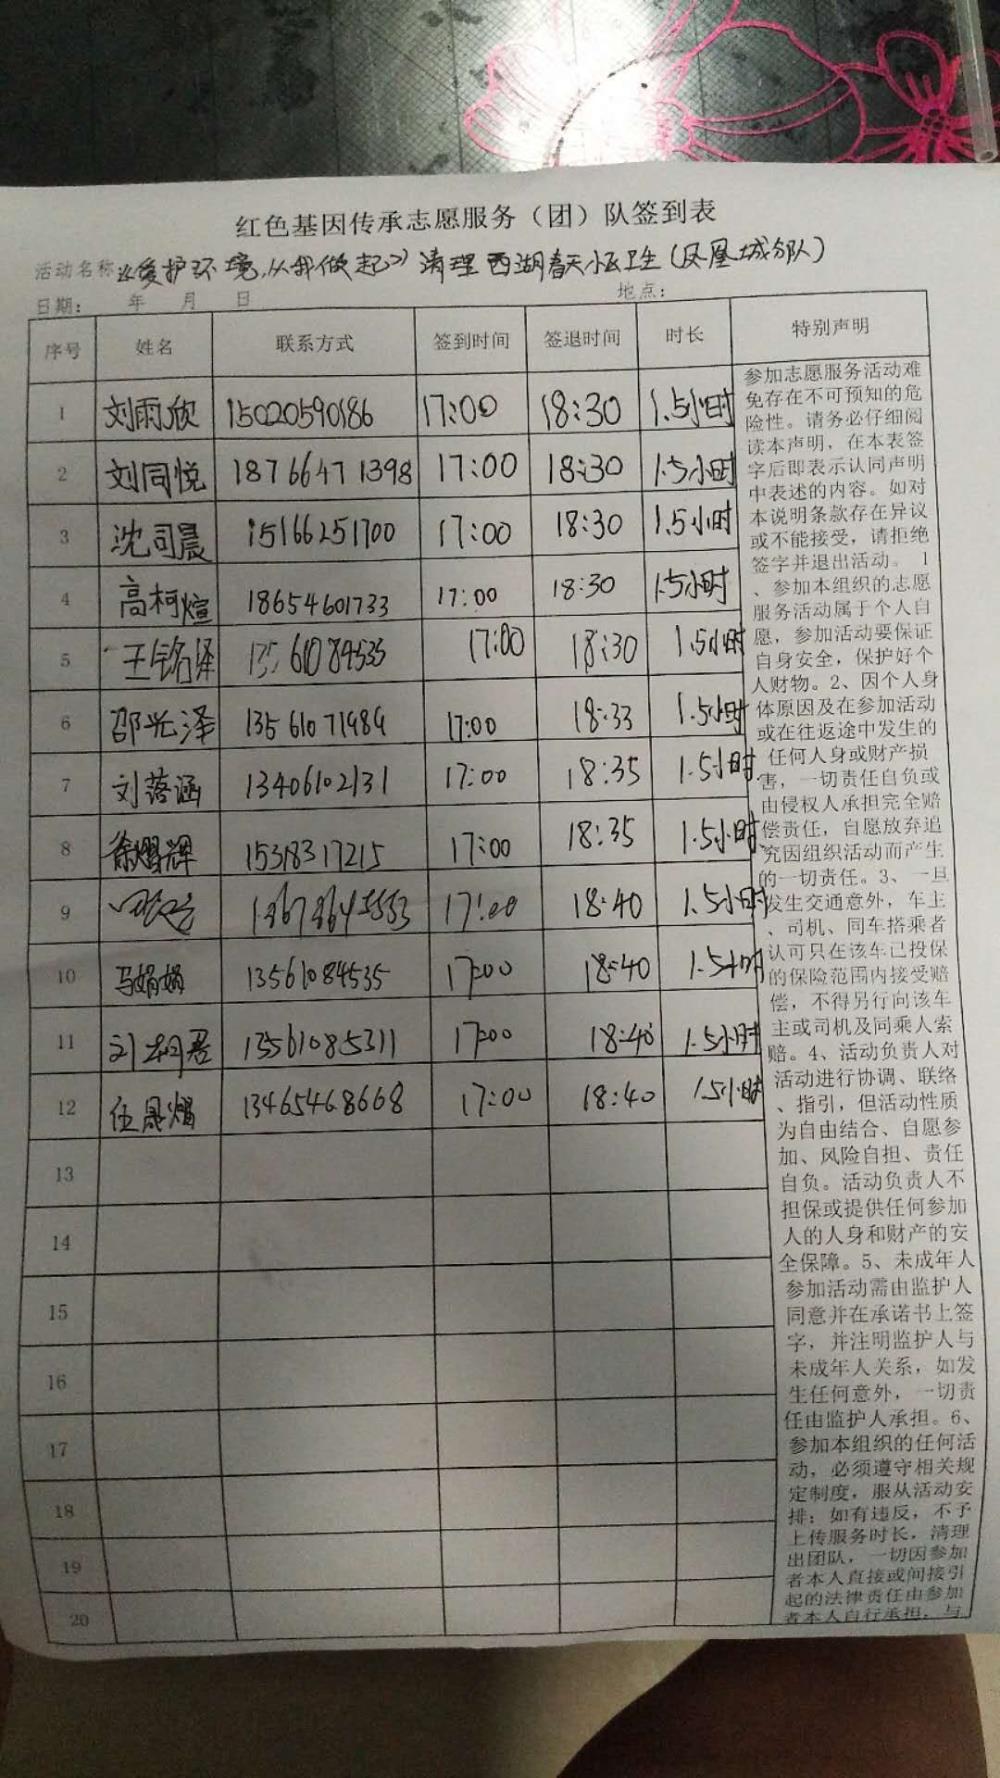 红色基因传承志愿服务（团）队签到表
活动名称：《爱护环境,从我做起》清理西湖春天小区卫生(凤凰城分队)
日期： 年 月 日 地点：
序号 姓名 联系方式 签到时间 签退时间 时长 特别声明
1 刘雨欣 15020590186 17:00 18:30 1.5小时
2 刘同悦 18766471398 17:00 18:30 1.5小时
3 沈司晨 15166251700 17:00 18:30 1.5小时
4 高柯煊 18654601733 17:00 18:30 1.5小时
5 王铭泽 13561084535 17:00 18:30 1.5小时
6 邵光泽 13561071989 17:00 18:33 1.5小时
7 刘落涵 13406102131 17:00 18:35 1.5小时
8 徐熠辉 15318317215 17:00 18:35 1.5小时
9 17:00 18:40 1.5小时
10 马娟娟 13561084535 17:00 18:40 1.5小时
11 刘桐君 13561085311 17:00 18:40 1.5小时
12 伍晟熠 13465468668 17:00 18:40 1.5小时
13
14
15
16
17
18
19
20
参加志愿服务活动难
免存在不可预知的危
险性。请务必仔细阅
读本声明，在本表签
字后即表示认同声明
中表述的内容。如对
本说明条款存在异议
或不能接受，请拒绝
签字并退出活动。 1
、参加本组织的志愿
服务活动属于个人自
愿，参加活动要保证
自身安全，保护好个
人财物。2、因个人身
体原因及在参加活动
或在往返途中发生的
任何人身或财产损
害，一切责任自负或
由侵权人承担完全赔
偿责任，自愿放弃追
究因组织活动而产生
的一切责任。3、一旦
发生交通意外，车主
、司机、同车搭乘者
认可只在该车已投保
的保险范围内接受赔
偿，不得另行向该车
主或司机及同乘人索
赔。4、活动负责人对
活动进行协调、联络
、指引，但活动性质
为自由结合、自愿参
加、风险自担、责任
自负。活动负责人不
担保或提供任何参加
人的人身和财产的安
全保障。5、未成年人
参加活动需由监护人
同意并在承诺书上签
字，并注明监护人与
未成年人关系，如发
生任何意外，一切责
任由监护人承担。6、
参加本组织的任何活
动，必须遵守相关规
定制度，服从活动安
排；如有违反，不予
上传服务时长，清理
出团队，一切因参加
者本人直接或间接引
起的法律责任由参加
者本人自行承担，与